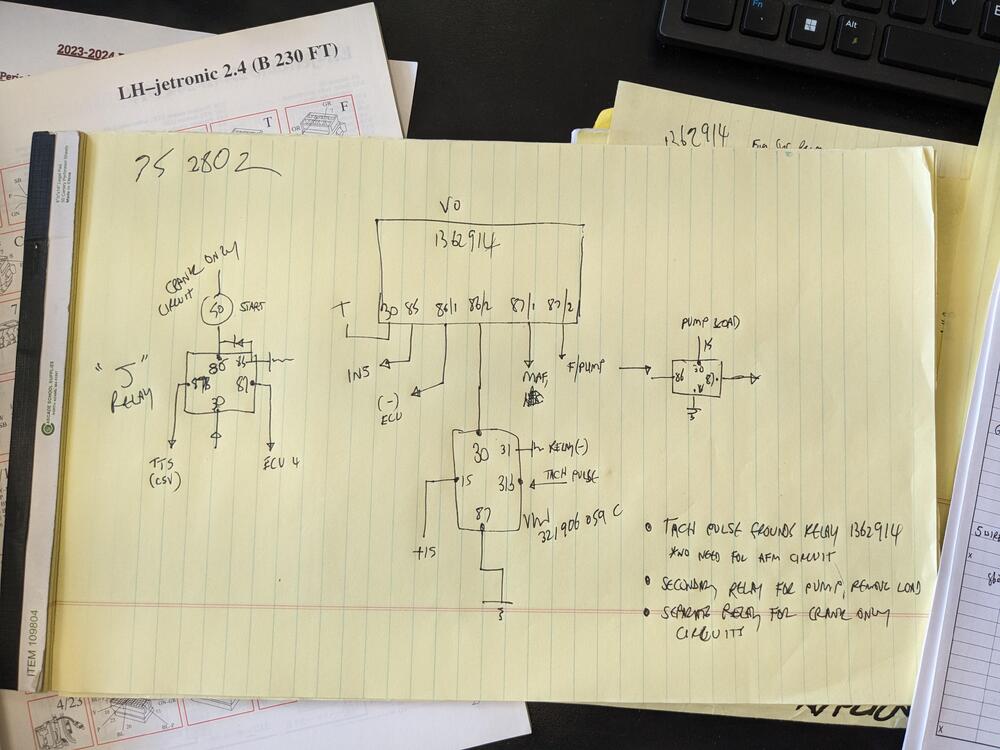 2023-2024
LH–jetronic 2.4 (B 230 FT)
T
F
GR
OR
Fn
Alt
1362914
75 2802
VO
1362914
30 85 86/1 86/2 87/1 87/2
T
INS
(-)
ECU
MAF,
F/PUMP
CRANK ONLY
CIRCUIT
50 START
"J"
RELAY
86 85
87B 87
30
TTS
(CSV)
ECU 4
30 31 RELAY(-)
15 31b TACH PULSE
87
VW
321 906 059 C
+15
PUMP LOAD
15
30
86 87
31
• TACH PULSE GROUNDS RELAY 1362914
*NO NEED FOR AFM CIRCUIT
• SECONDARY RELAY FOR PUMP, REMOVE LOAD
• SEPARATE RELAY FOR CRANK ONLY
CIRCUITS
ARCADE SCHOOL SUPPLIES
ITEM 109804
4/23